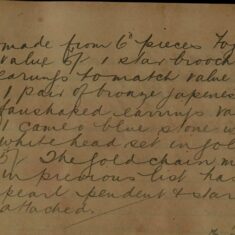 made from 6d pieces tog
value 5/ 1 star brooch
earings to match value
1 pair of bronze japenes
fanshaked earings va
1 cameo blue stone w
white head set in gol
5/. The gold chain m
in previous list has
pearl pendent & star
attached.